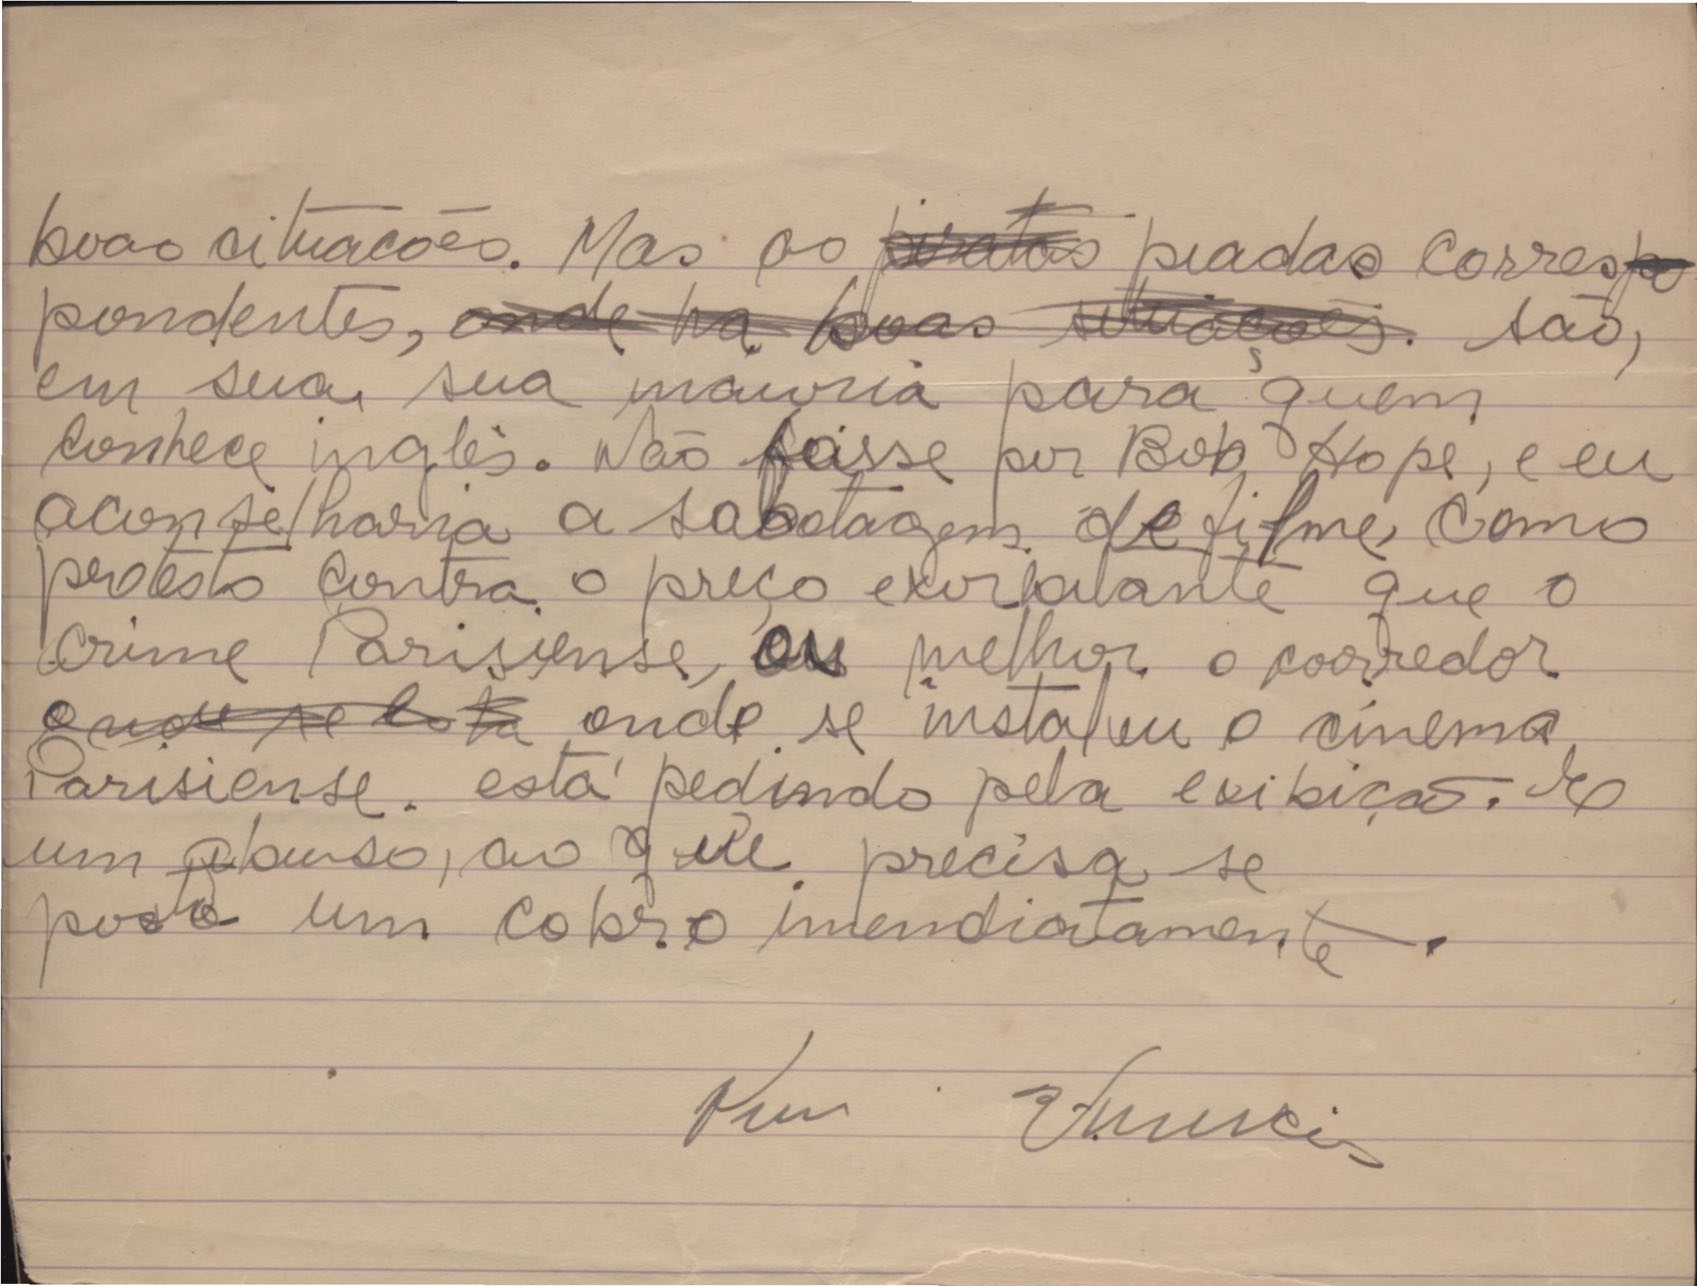 boas situacões. Mas as piratas piadas correspo
pondentes, onde ha boas situações. são,
em sua, sua maioria para quem
conhece inglês. Não fosse por Bob Hope, e eu
aconselharia a sabotagem de filme, como
protesto contra o preço exorbitante que o
crime Parisiense, ou melhor o coorredor
onde se bota onde se instalou o cinema
Parisiense. está pedindo pela exibição. É
um abuso, ao que precisa se
por um cobro imendiatamente.
Vinicius